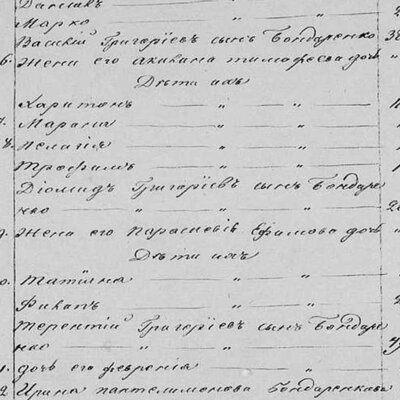 Даніилъ — " — " 2
Марко — " — "
Василій Григоріевъ сынъ Бондаренко 38
6. Жена его Акилина Тимофеева дочь "
Дѣти ихъ
Харитонъ — " — " 1
7. Марѳа — " — "
8. Пелагія — " — " 1
Трофимъ — " — " 1
Діомидъ Григоріевъ сынъ Бондаре
нко — " — " 2
9. Жена его Параскевія Ефимова дочь "
Дѣти ихъ
0. Татіяна — " — "
Филипъ — " — " 2
Терентій Григоріевъ сынъ Бондаре
нко — " — "
1. дочь его Февронія — " — "
2 Ирина Пантелимонова Бондаренкова